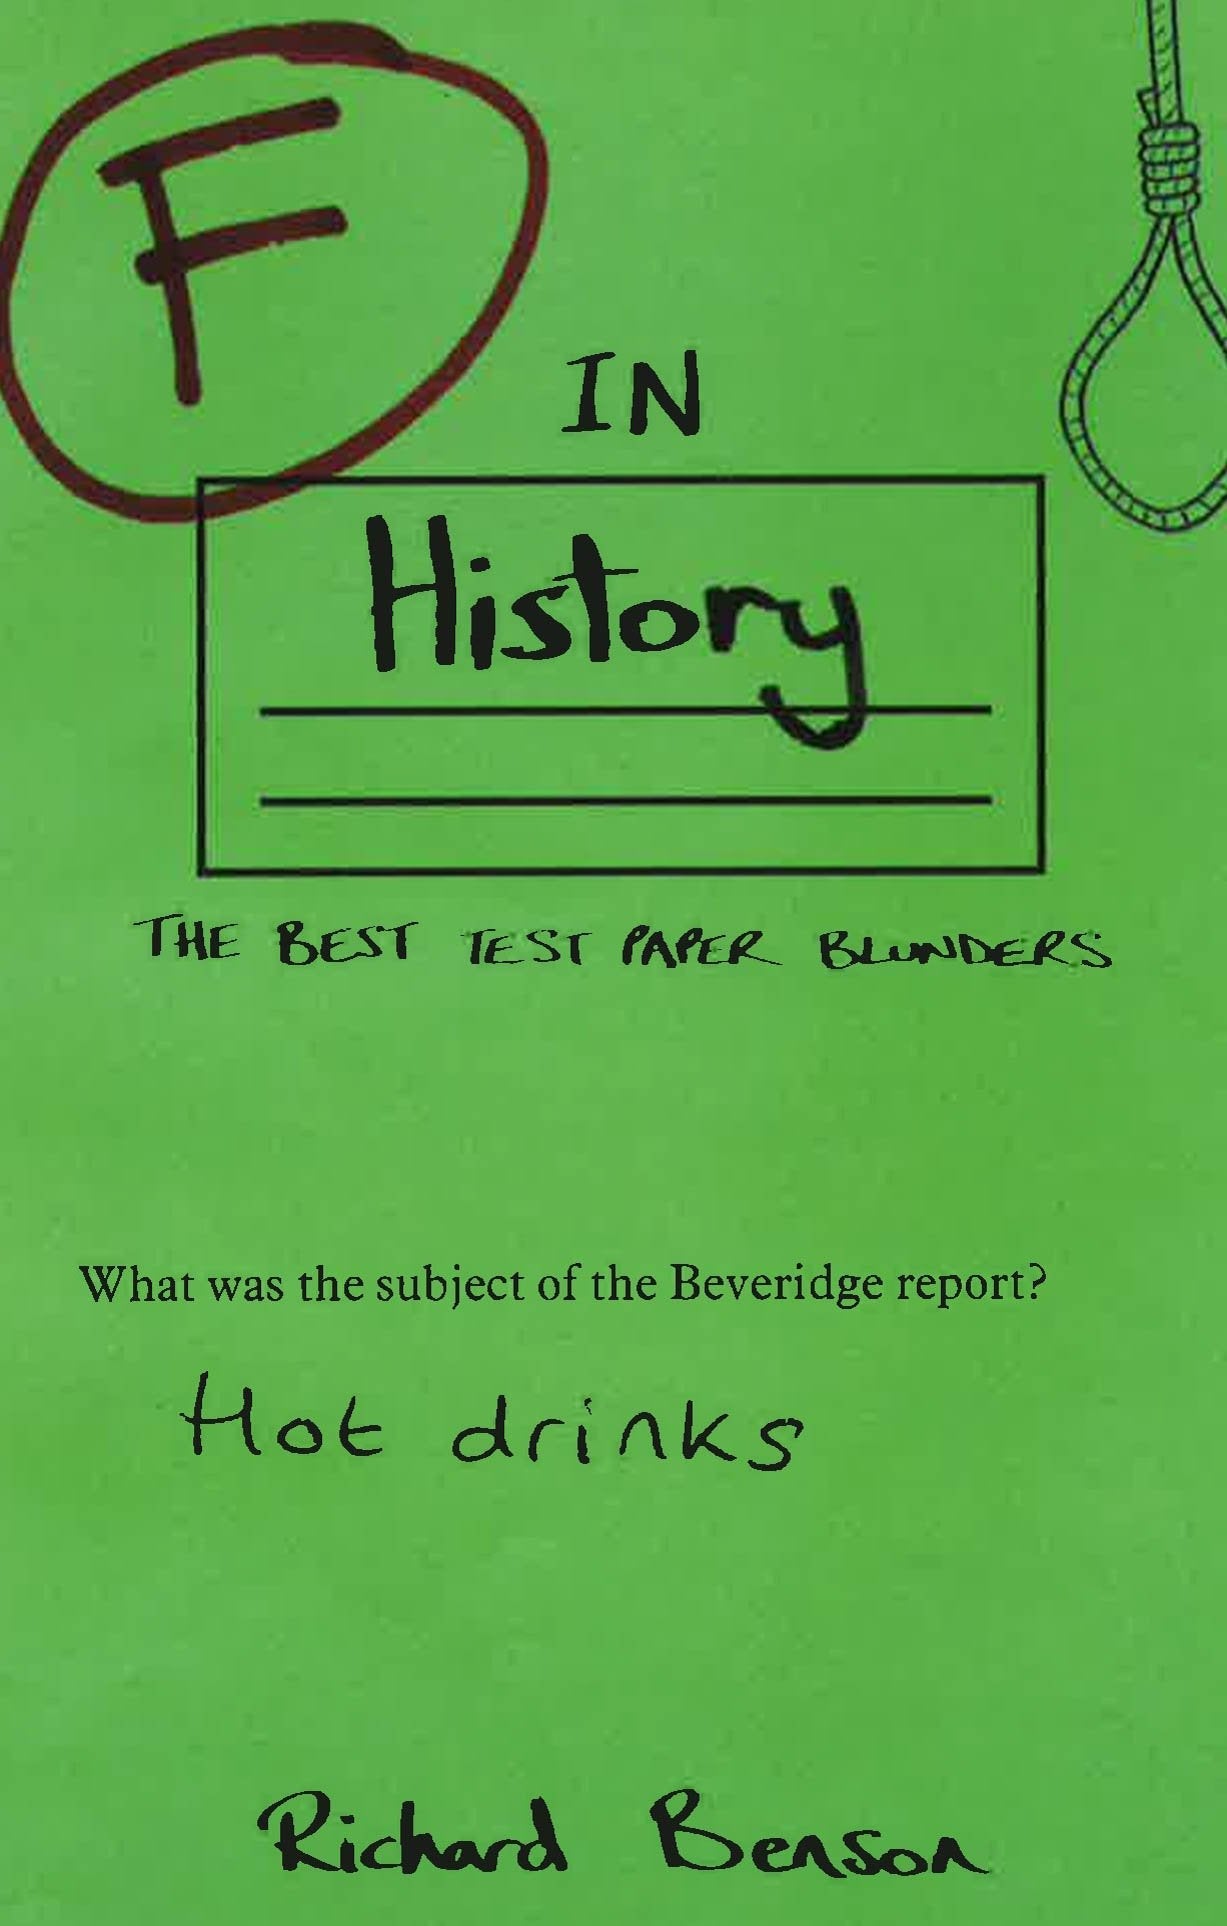 F
IN
History
THE BEST TEST PAPER BLUNDERS
What was the subject of the Beveridge report?
Hot drinks
Richard Benson